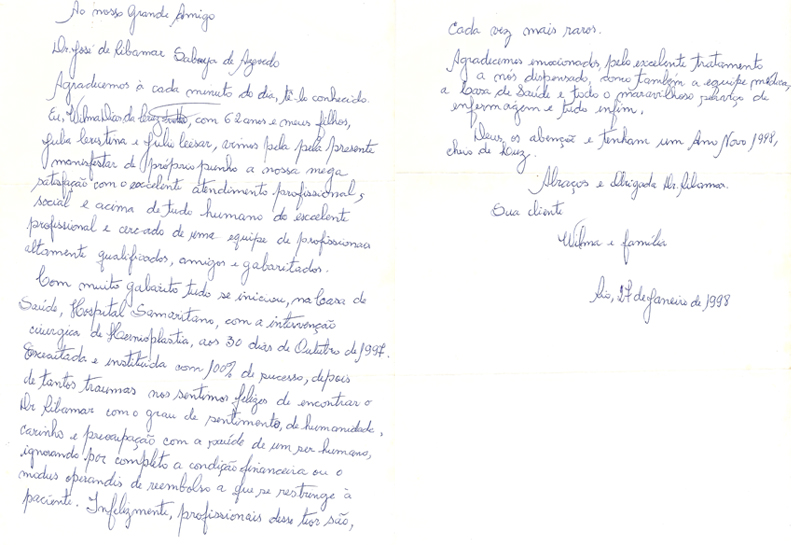 Ao nosso Grande Amigo
Dr. José de Ribamar Saboya de Azevedo
Agradecemos à cada minuto do dia, tê-lo conhecido.
Eu, Wilma Dias da Cruz, com 62 anos e meus filhos,
Julia Cristina e Julio Cesar, vimos pela pela presente
manifestar de próprio punho a nossa mega
satisfação com o excelente atendimento profissional,
social e acima de tudo humano do excelente
profissional e cercado de uma equipe de profissionais
altamente qualificados, amigos e gabaritados.
Com muito gabarito tudo se iniciou, na Casa de
Saúde, Hospital Samaritano, com a intervenção
cirúrgica de Hernioplastia, aos 30 dias de Outubro de 1997.
Executada e instituida com 100% de sucesso, depois
de tantos traumas nos sentimos felizes de encontrar o
Dr Ribamar com o grau de sentimento, de humanidade,
carinho e preocupação com a saúde de um ser humano,
ignorando por completo a condição financeira ou o
modus operandis de reembolso a que se restringe à
paciente. Infelizmente, profissionais desse teor são,
Cada vez mais raros.
Agradecemos emocionados, pelo excelente tratamento
a nós dispensado, como também a equipe médica,
a Casa de Saúde e todo o maravilhoso serviço de
enfermagem e tudo enfim.
Deus, os abenção e tenham um Ano Novo 1998,
cheio de Luz.
Abraços e Obrigada Dr. Ribamar.
Sua cliente
Wilma e família
Rio, 27 de Janeiro de 1998